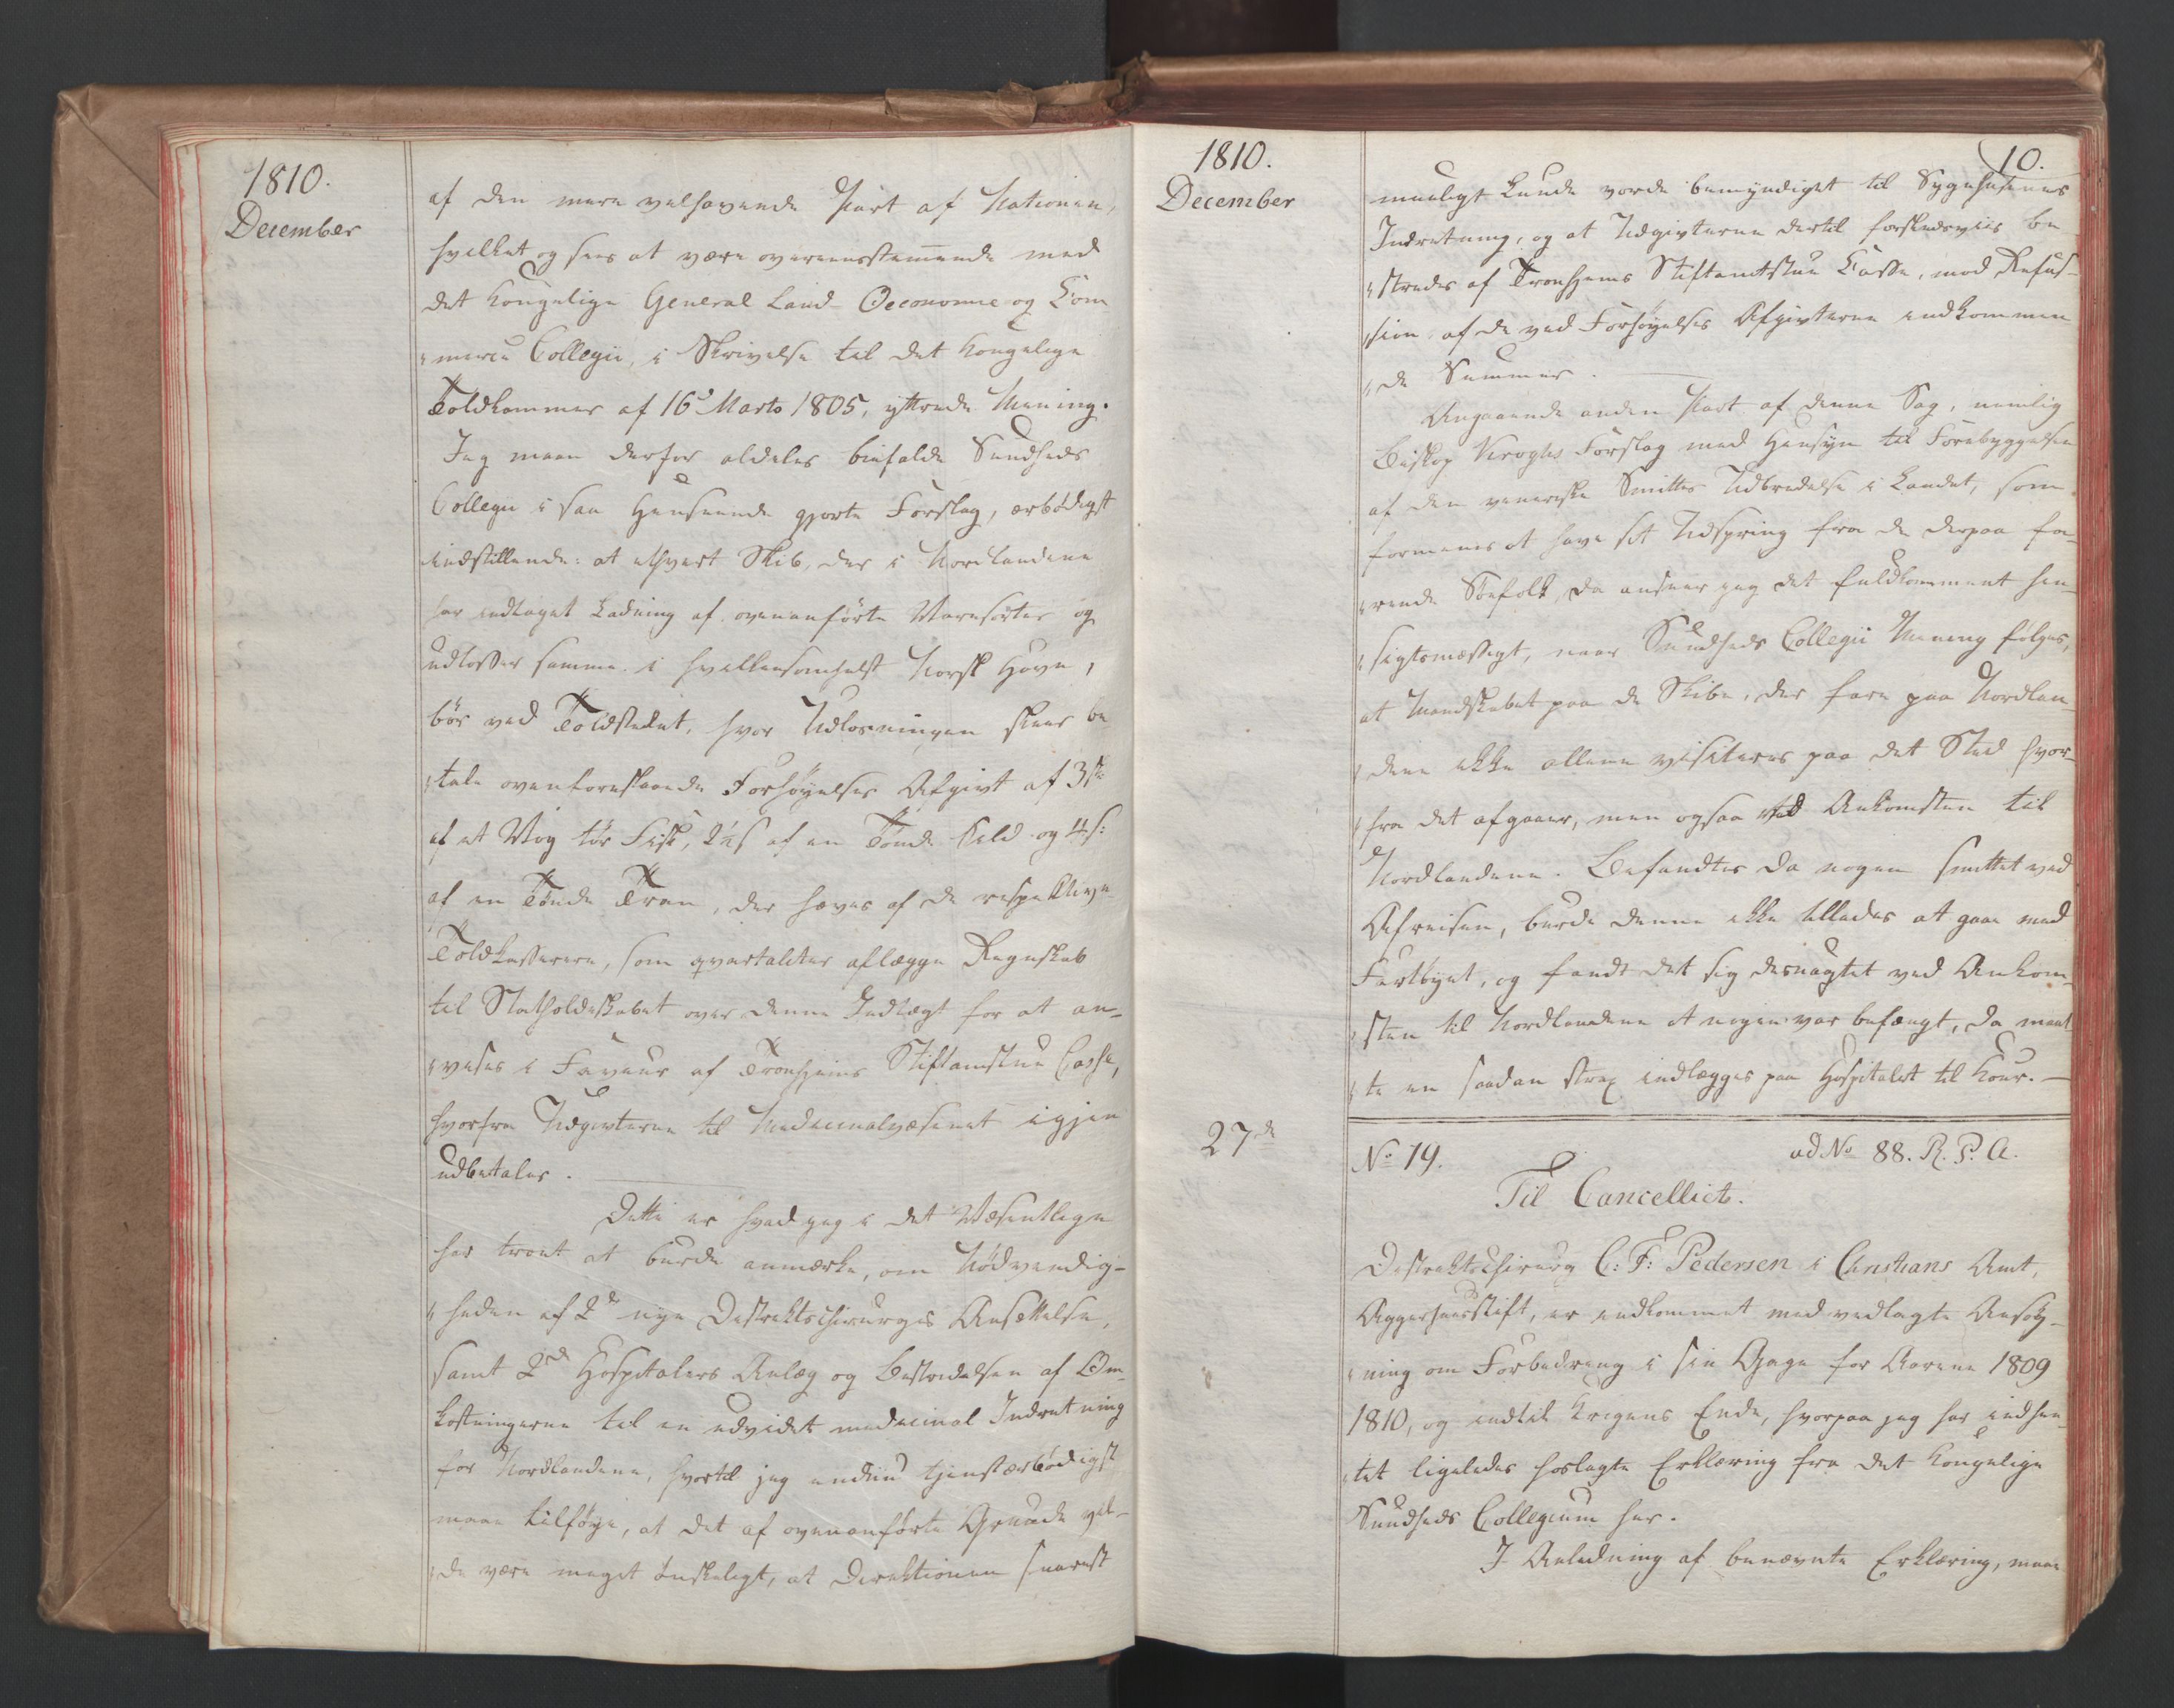 1810.
December
af den mere velhavende Part af Nationen,
hvilket og sees at være overeensstemmende med
det Kongelige General Land Oeconomie og Com
„merce Collegii, i Skrivelse til det Kongelige
Toldkammer af 16de Marts 1805, yttrede Mening.
Jeg maae derfor aldeles bifalde Sundheds
Collegii i saa Henseende gjorte Forslag, ærbødigst
indstillende: at ethvert Skib, der i Nordlandene
har indtaget Ladning af ovenanførte Varesorter og
udlosser samme i hvilkensomhelst Norsk Havn,
bør ved Toldstedet, hvor Udlosningen skeer be
„tale ovenforeslaaede Forhøyelses Afgivt af 3 sk
af et Vog tør Fisk, 2½ s af en Tønde Sild og 4 s:
af en Tønde Tran, der hæves af de respektive
Toldkasserere, som qvartaliter aflægge Regnskab
til Statholderskabet over denne Indtægt for at an-
„vises i Faveur af Tronhjems Stiftamtstue Casse,
hvorfra Udgivterne til Medicinalvæsenet igjen
udbetales.
Dette er hvad jeg i det Væsentlige
har troet at burde anmærke, om Nødvendig-
„heden af 2de nye Distriktschirurgers Ansættelse,
samt 2de Hospitalers Anlæg og Bestridelsen af Om-
kostningerne til en udvidet medicinal Indretning
for Nordlandene, hvortil jeg endnu tjenstærbødigst
maae tilføye, at det af ovenanførte Grunde vil-
„de være meget ønskeligt, at Direktionen snarest
1810.
December
10.
mueligt kunde vorde bemyndiget til Sygehusenes
Indretning, og at Udgivterne dertil forskudsviis be
„stredes af Tronhjems Stiftamtstue Casse, mod Refus-
„sion af de ved Forhøyelses Afgivterne indkommen
„de Summer.
Angaaende anden Part af denne Sag, nemlig
Biskop Kroghs Forslag med Hensyn til Forebyggelsen
af den veneriske Smittes Udbredelse i Landet, som
formenes at have sit Udspring fra de derpaa fa-
„rende Søefolk, da anseer jeg det fuldkomment hen-
„sigtsmæssigt, naar Sundheds Collegii Mening følges,
at Mandskabet paa de Skibe, der fare paa Nordlan-
„dene ikke allene visiteres paa det Sted hvor-
„fra det afgaaer, men ogsaa ved Ankomsten til
Nordlandene. Befandtes da nogen smittet ved
Afreisen, burde denne ikke tillades at gaae med
Fartøyet, og fandt det sig desuagtet ved Ankom-
„sten til Nordlandene at nogen var befængt, da maat
„te en saadan strax indlægges paa Hospitalet til Kuur.—
27de
No 19.
ad No 88. R. P. A.
Til Cancelliet.
Distriktschirurg C: F: Pedersen i Christians Amt,
Aggershuusstift, er indkommet med vedlagte Ansøg-
„ning om Forbedring i sin Gage for Aarene 1809
1810, og indtil Krigens Ende, hvorpaa jeg har indhen-
„tet ligeledes hoslagte Erklæring fra det Kongelige
Sundheds Collegium her.
I Anledning af benævnte Erklæring, maae